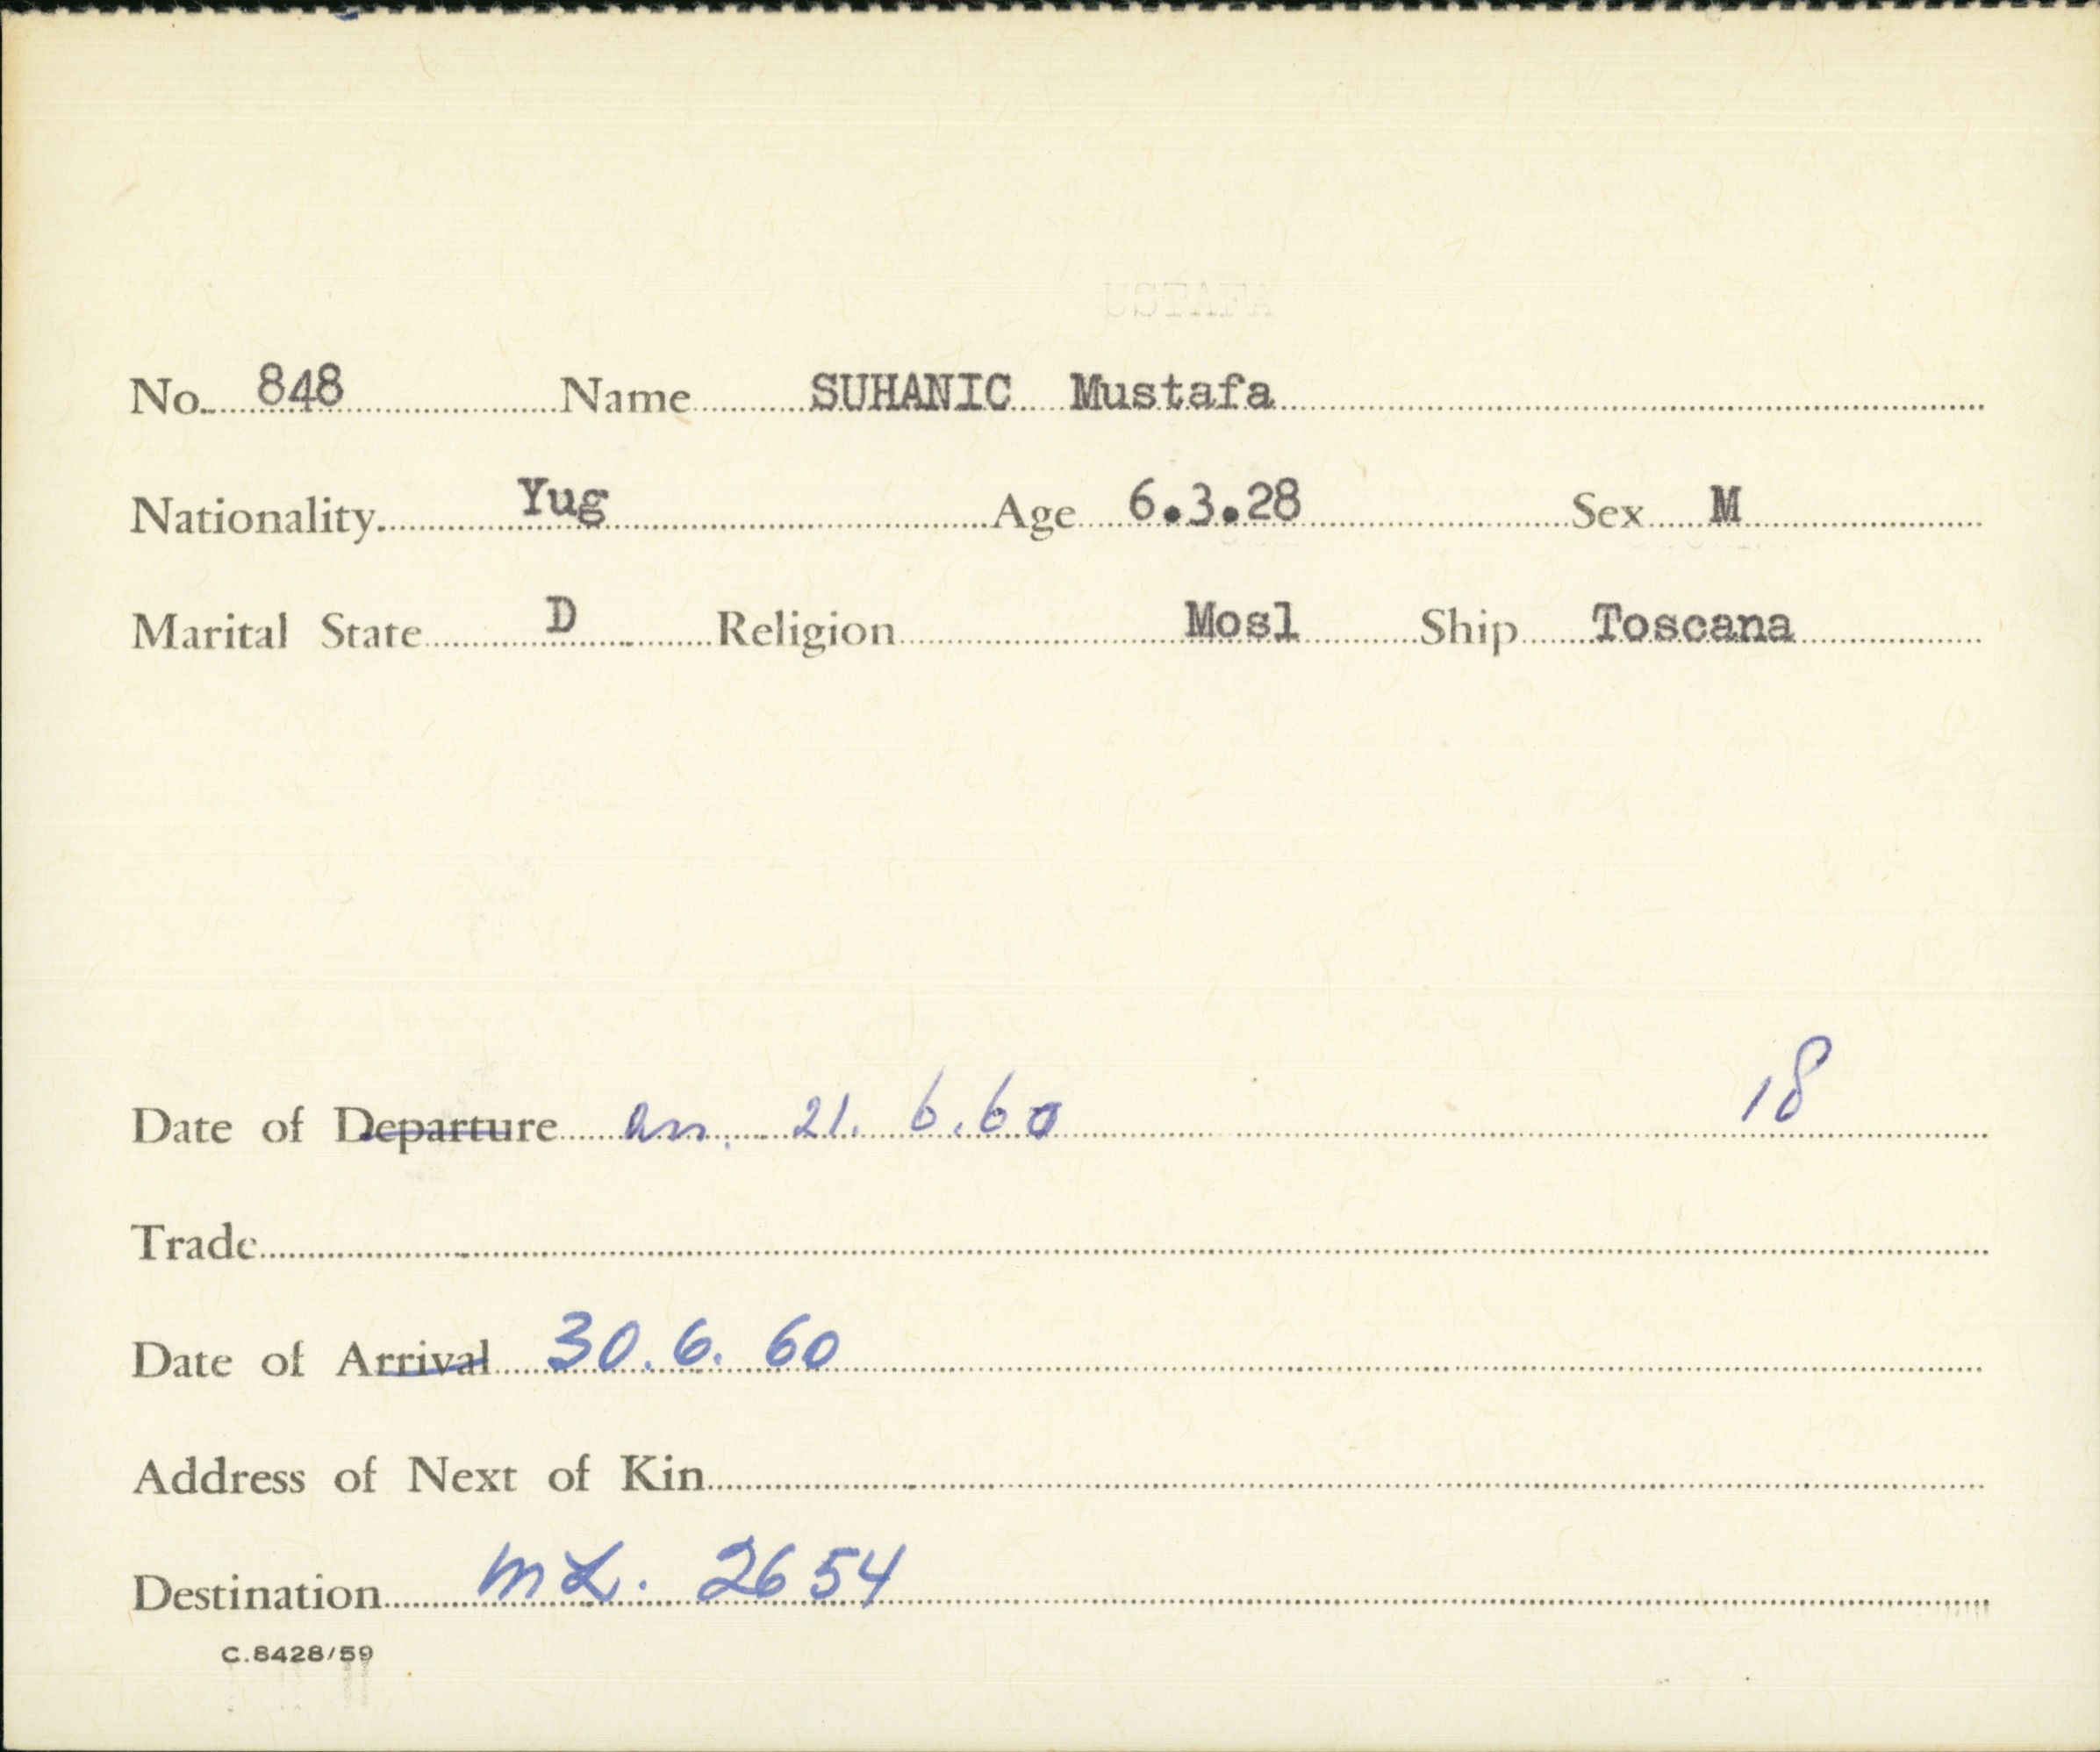 No. 848 Name SUHANIC Mustafa
Nationality Yug Age 6.3.28 Sex M
Marital State D Religion Mosl Ship Toscana
18
Date of Departure arr. 21. 6.60
Trade
Date of Arrival 30.6.60
Address of Next of Kin
Destination ML. 2654
C.8428/59